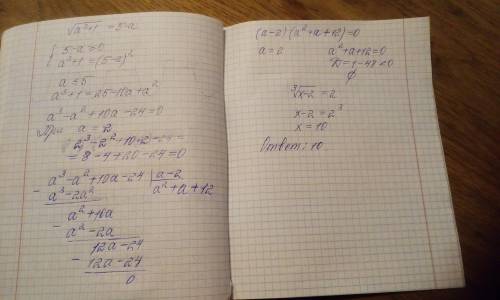 √a³+1 = 5-a
{ 5-a ≥ 0
a³+1 = (5-a)²
a ≤ 5
a³+1 = 25-10a+a²
a³-a²+10a-24=0
При a=2
2³-2²+10·2-24=
=8-4+20-24=0
a³-a²+10a-24 | a-2
- a³-2a² a²+a+12
a²+10a
- a²-2a
12a-24
- 12a-24
0
(a-2)(a²+a+12)=0
a=2 a²+a+12=0
D=1-48<0
∅
∛x-2 = 2
x-2=2³
x=10
Ответ: 10.